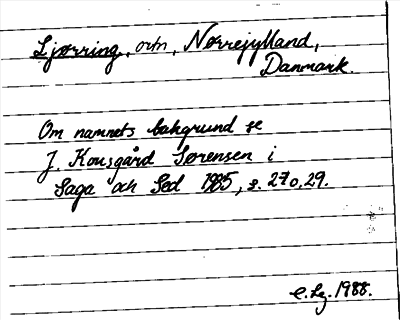 Ljørring, ortn, Nørrejylland,
Danmark.
Om namnets bakgrund se
J. Kousgård Sørensen i
Saga och Sed 1985, s. 27 o. 29.
1988.